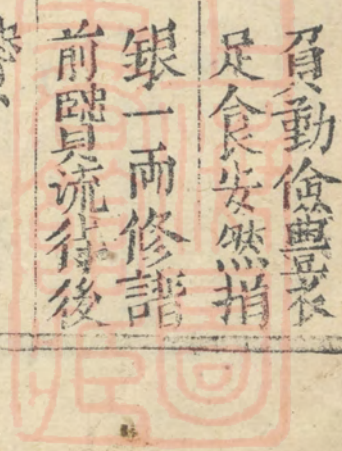 貟動儉豊衣
足食安然捐
銀一兩修譜
前賢流待後